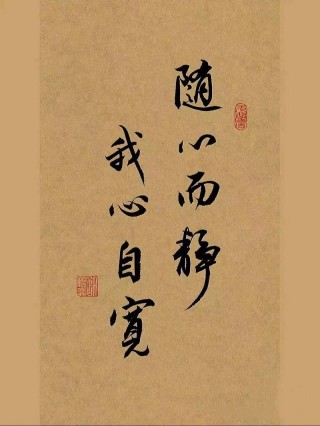 随心而静
我心自寛